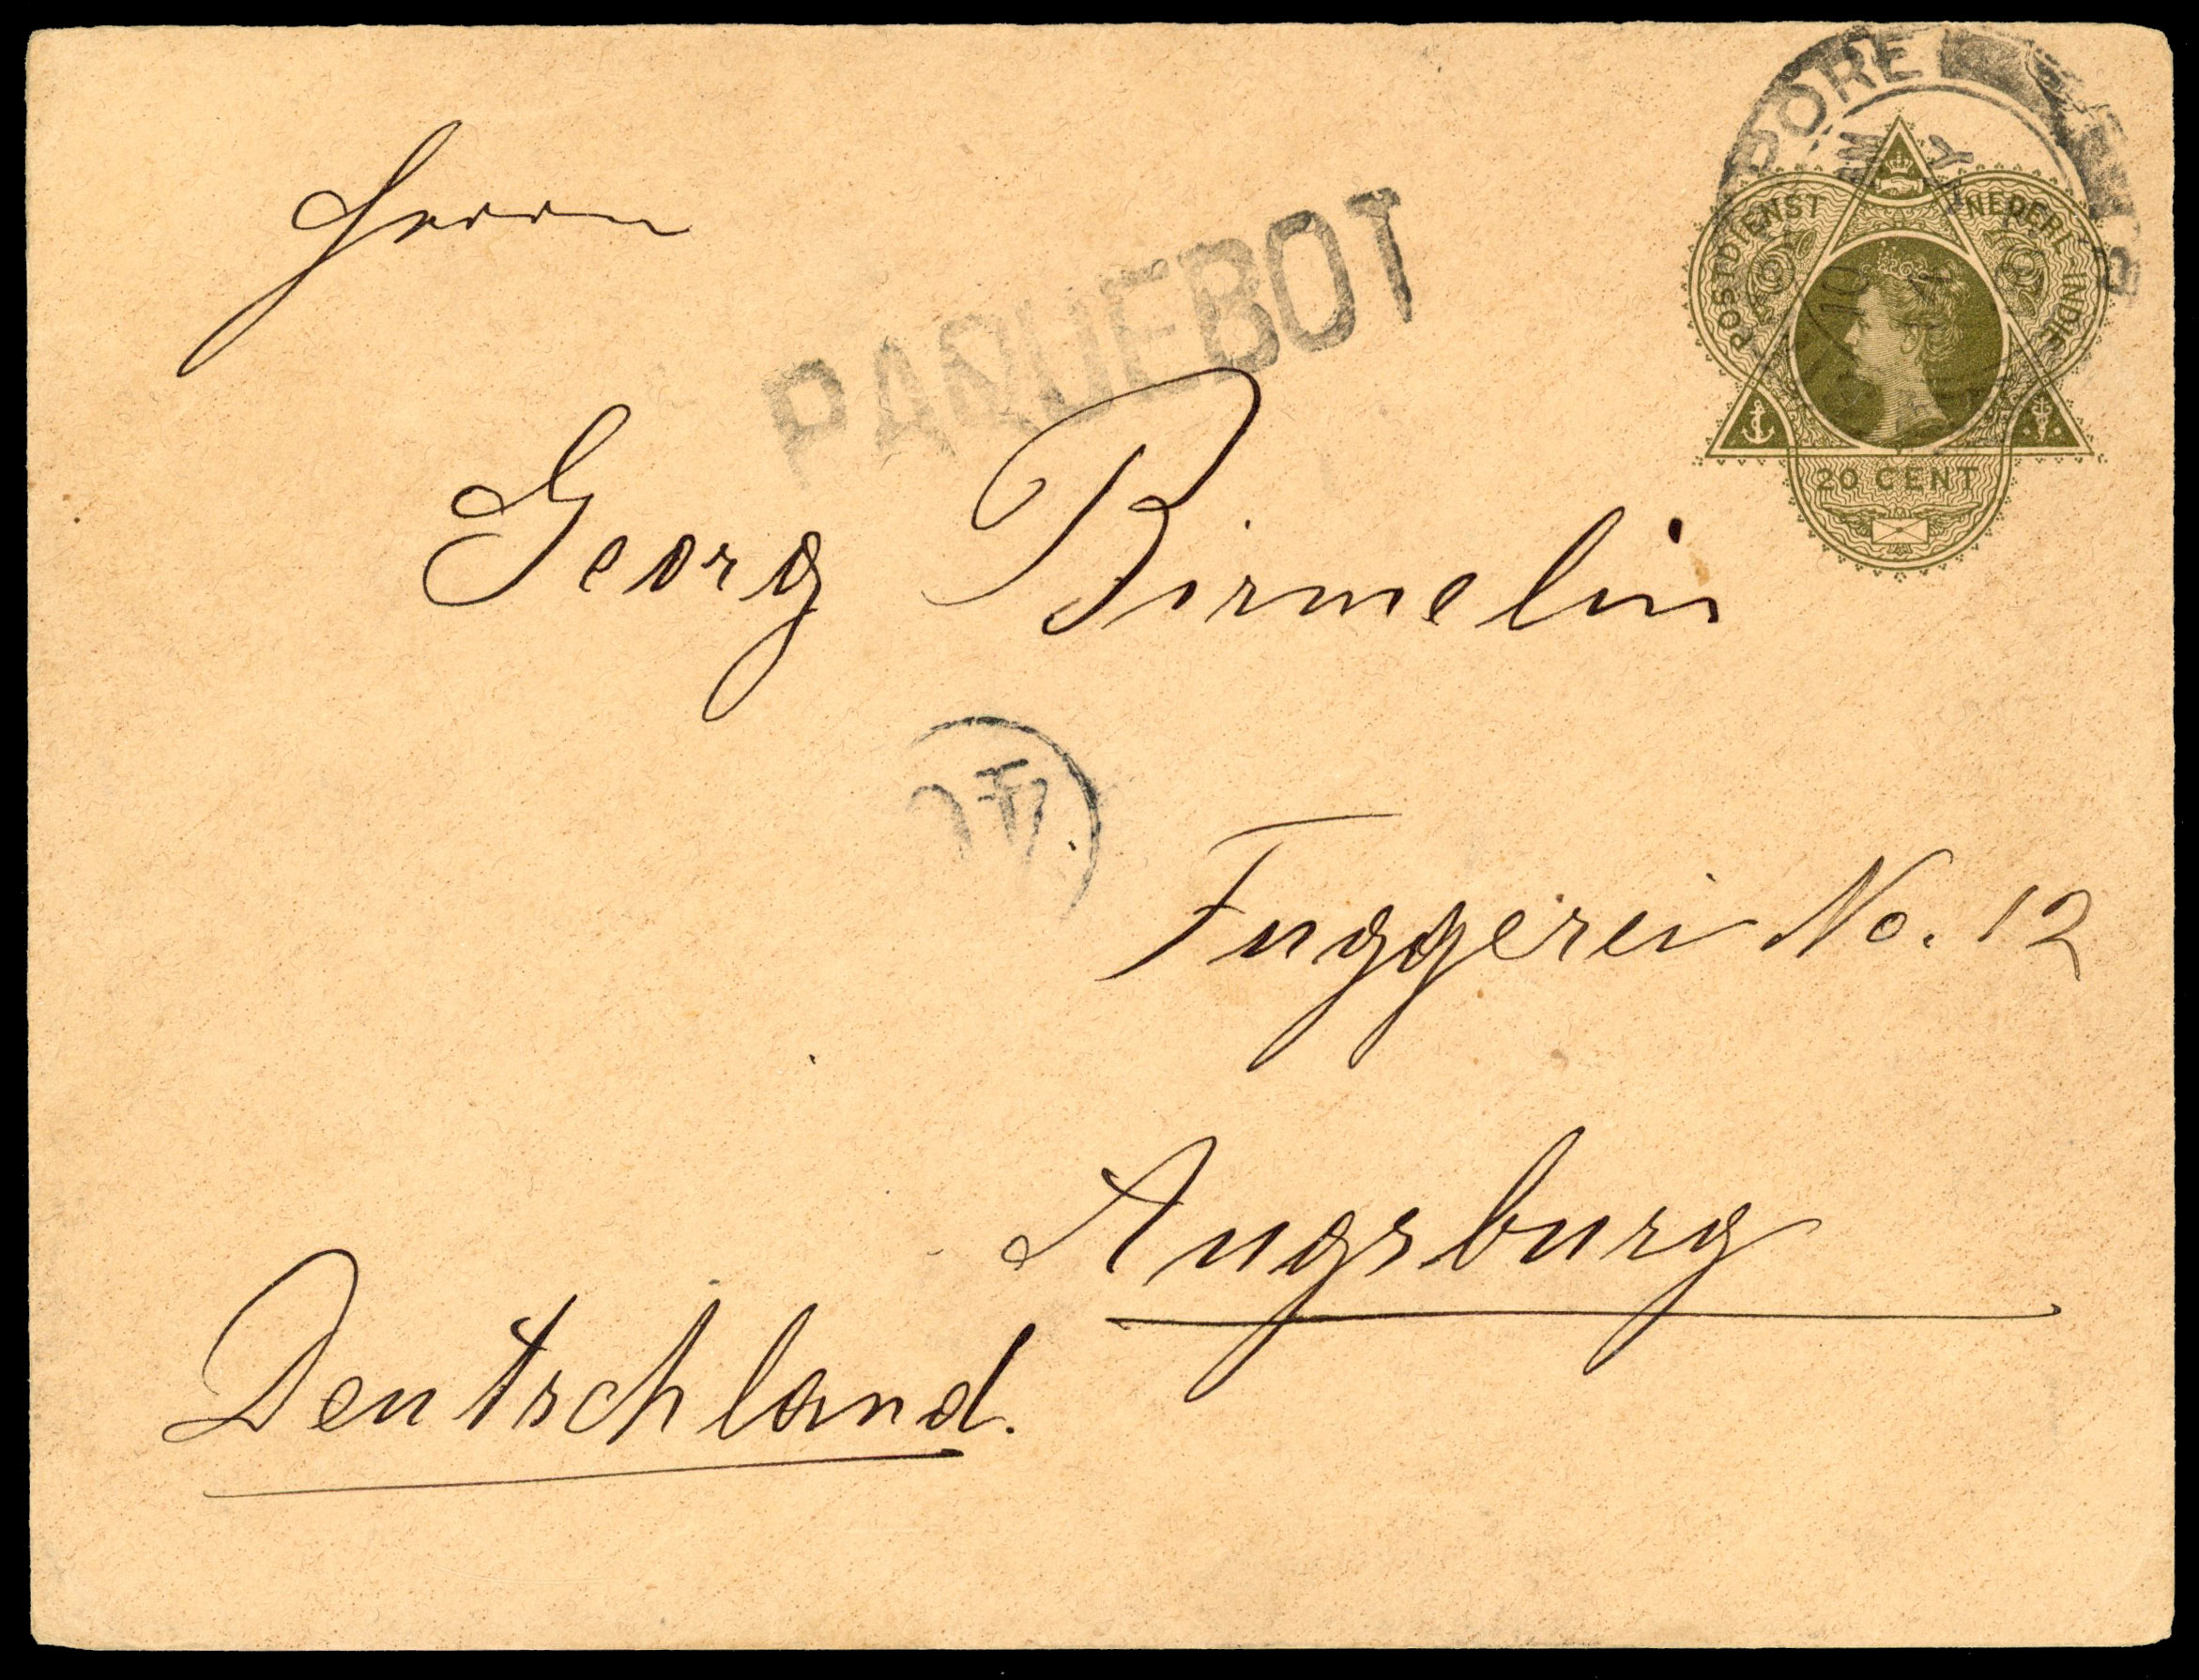 Herrn
PAQUEBOT
PORE
POSTDIENST NEDERL. INDIE
20 CENT
Georg Birmelin
Fuggerei No. 12
Augsburg
Deutschland.